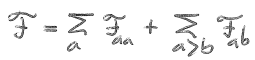 ℱ = Σ_a ℱ_aa + Σ_a>b ℱ_ab